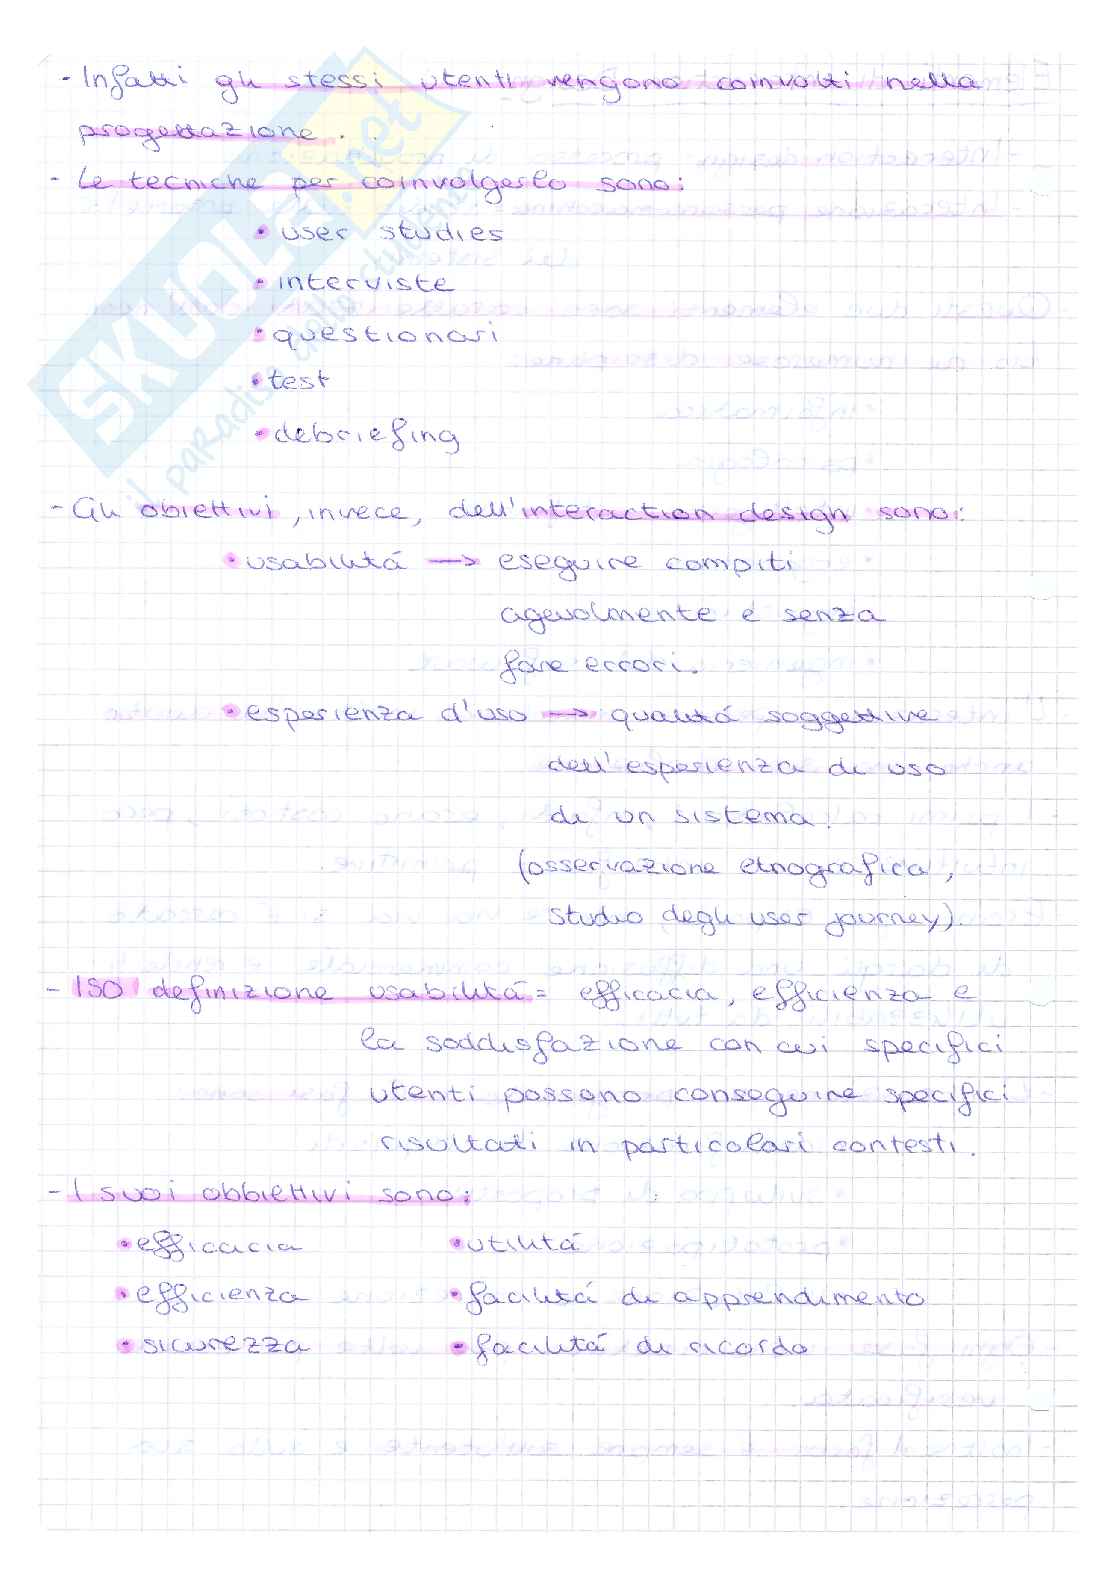 - Infatti gli stessi utenti vengono coinvolti nella
progettazione.
- Le tecniche per coinvolgerlo sono:
• user studies
• interviste
• questionari
• test
• debriefing
- Gli obiettivi, invece, dell'interaction design sono:
• usabilitá → eseguire compiti
agevolmente e senza
fare errori.
• esperienza d'uso → qualitá soggettive
dell'esperienza di uso
di un sistema.
(osservazione etnografica,
studio degli user journey).
- ISO definizione usabilitá = efficacia, efficienza e
la soddisfazione con cui specifici
utenti possono conseguire specifici
risultati in particolari contesti.
- I suoi obbiettivi sono:
• efficacia • utilitá
• efficienza • facilitá di apprendimento
• sicurezza • facilitá di ricordo
SKUOLA.net
il paradiso dello studente